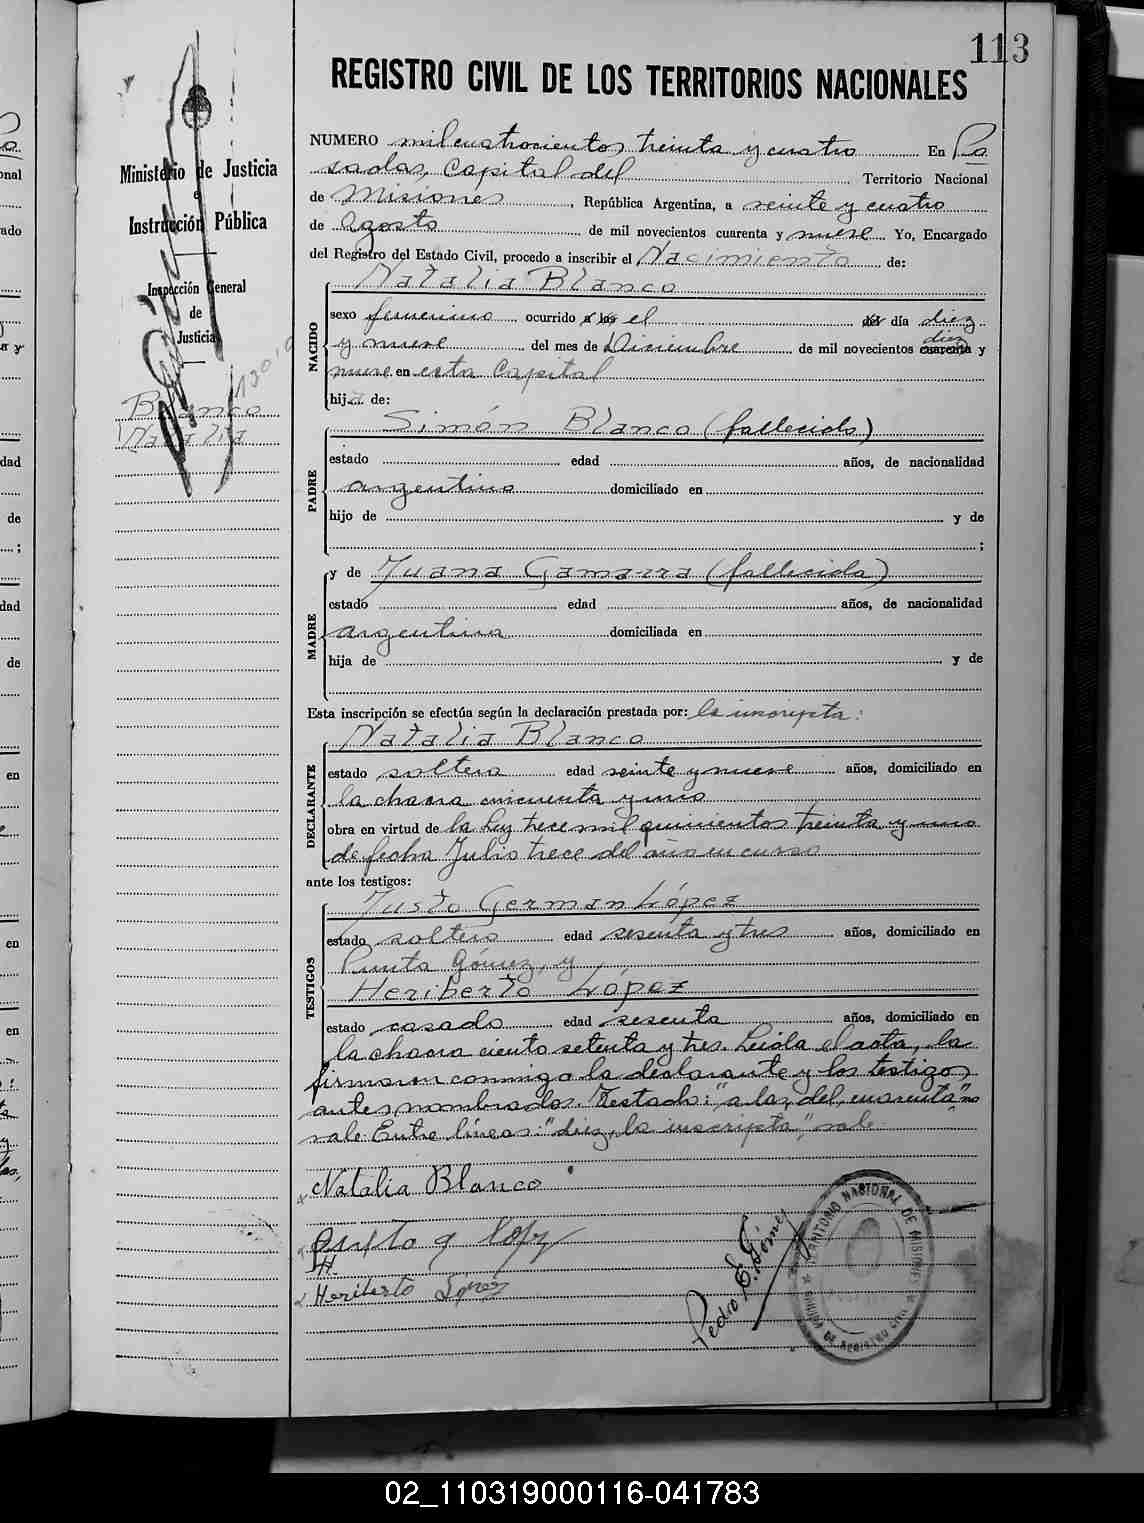 113
REGISTRO CIVIL DE LOS TERRITORIOS NACIONALES
Ministerio de Justicia
e
Instrucción Pública
Inspección General
de
Justicia
Blanco
Natalia
NUMERO mil cuatrocientos treinta y cuatro En Po
sadas, Capital del Territorio Nacional
de Misiones, República Argentina, a veinte y cuatro
de Agosto de mil novecientos cuarenta y nueve Yo, Encargado
del Registro del Estado Civil, procedo a inscribir el Nacimiento de:
Natalia Blanco
NACIDO
sexo femenino ocurrido a las el del día diez
y nueve del mes de Diciembre de mil novecientos cuarenta diez y
nueve en esta Capital
hija de:
Simón Blanco (fallecido)
PADRE
estado edad años, de nacionalidad
argentino domiciliado en
hijo de y de
;
y de Juana Gamarra (fallecida)
MADRE
estado edad años, de nacionalidad
argentina domiciliada en
hija de y de
Esta inscripción se efectúa según la declaración prestada por: la inscripta:
Natalia Blanco
DECLARANTE
estado soltera edad veinte y nueve años, domiciliado en
la chacra cincuenta y uno
obra en virtud de la Ley trece mil quinientos treinta y uno
de fecha Julio trece del año en curso
ante los testigos:
Justo German López
TESTIGOS
estado soltero edad sesenta y tres años, domiciliado en
Punta Gómez, y
Heriberto López
estado casado edad sesenta años, domiciliado en
la chacra ciento setenta y tres. Leída el acta, la
firmaron conmigo la declarante y los testigos
antes nombrados. Testado: "a las, del, cuarenta" no
vale. Entre líneas: "diez, la inscripta," vale
Natalia Blanco
Justo G López
H.
Heriberto López
Pedro E. Gómez
TERRITORIO NACIONAL DE MISIONES
OFICINA DE REGISTRO CIVIL
02_110319000116-041783